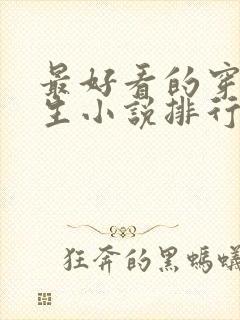 最好看的穿
生小说排行
狂奔的黑蚂蚁